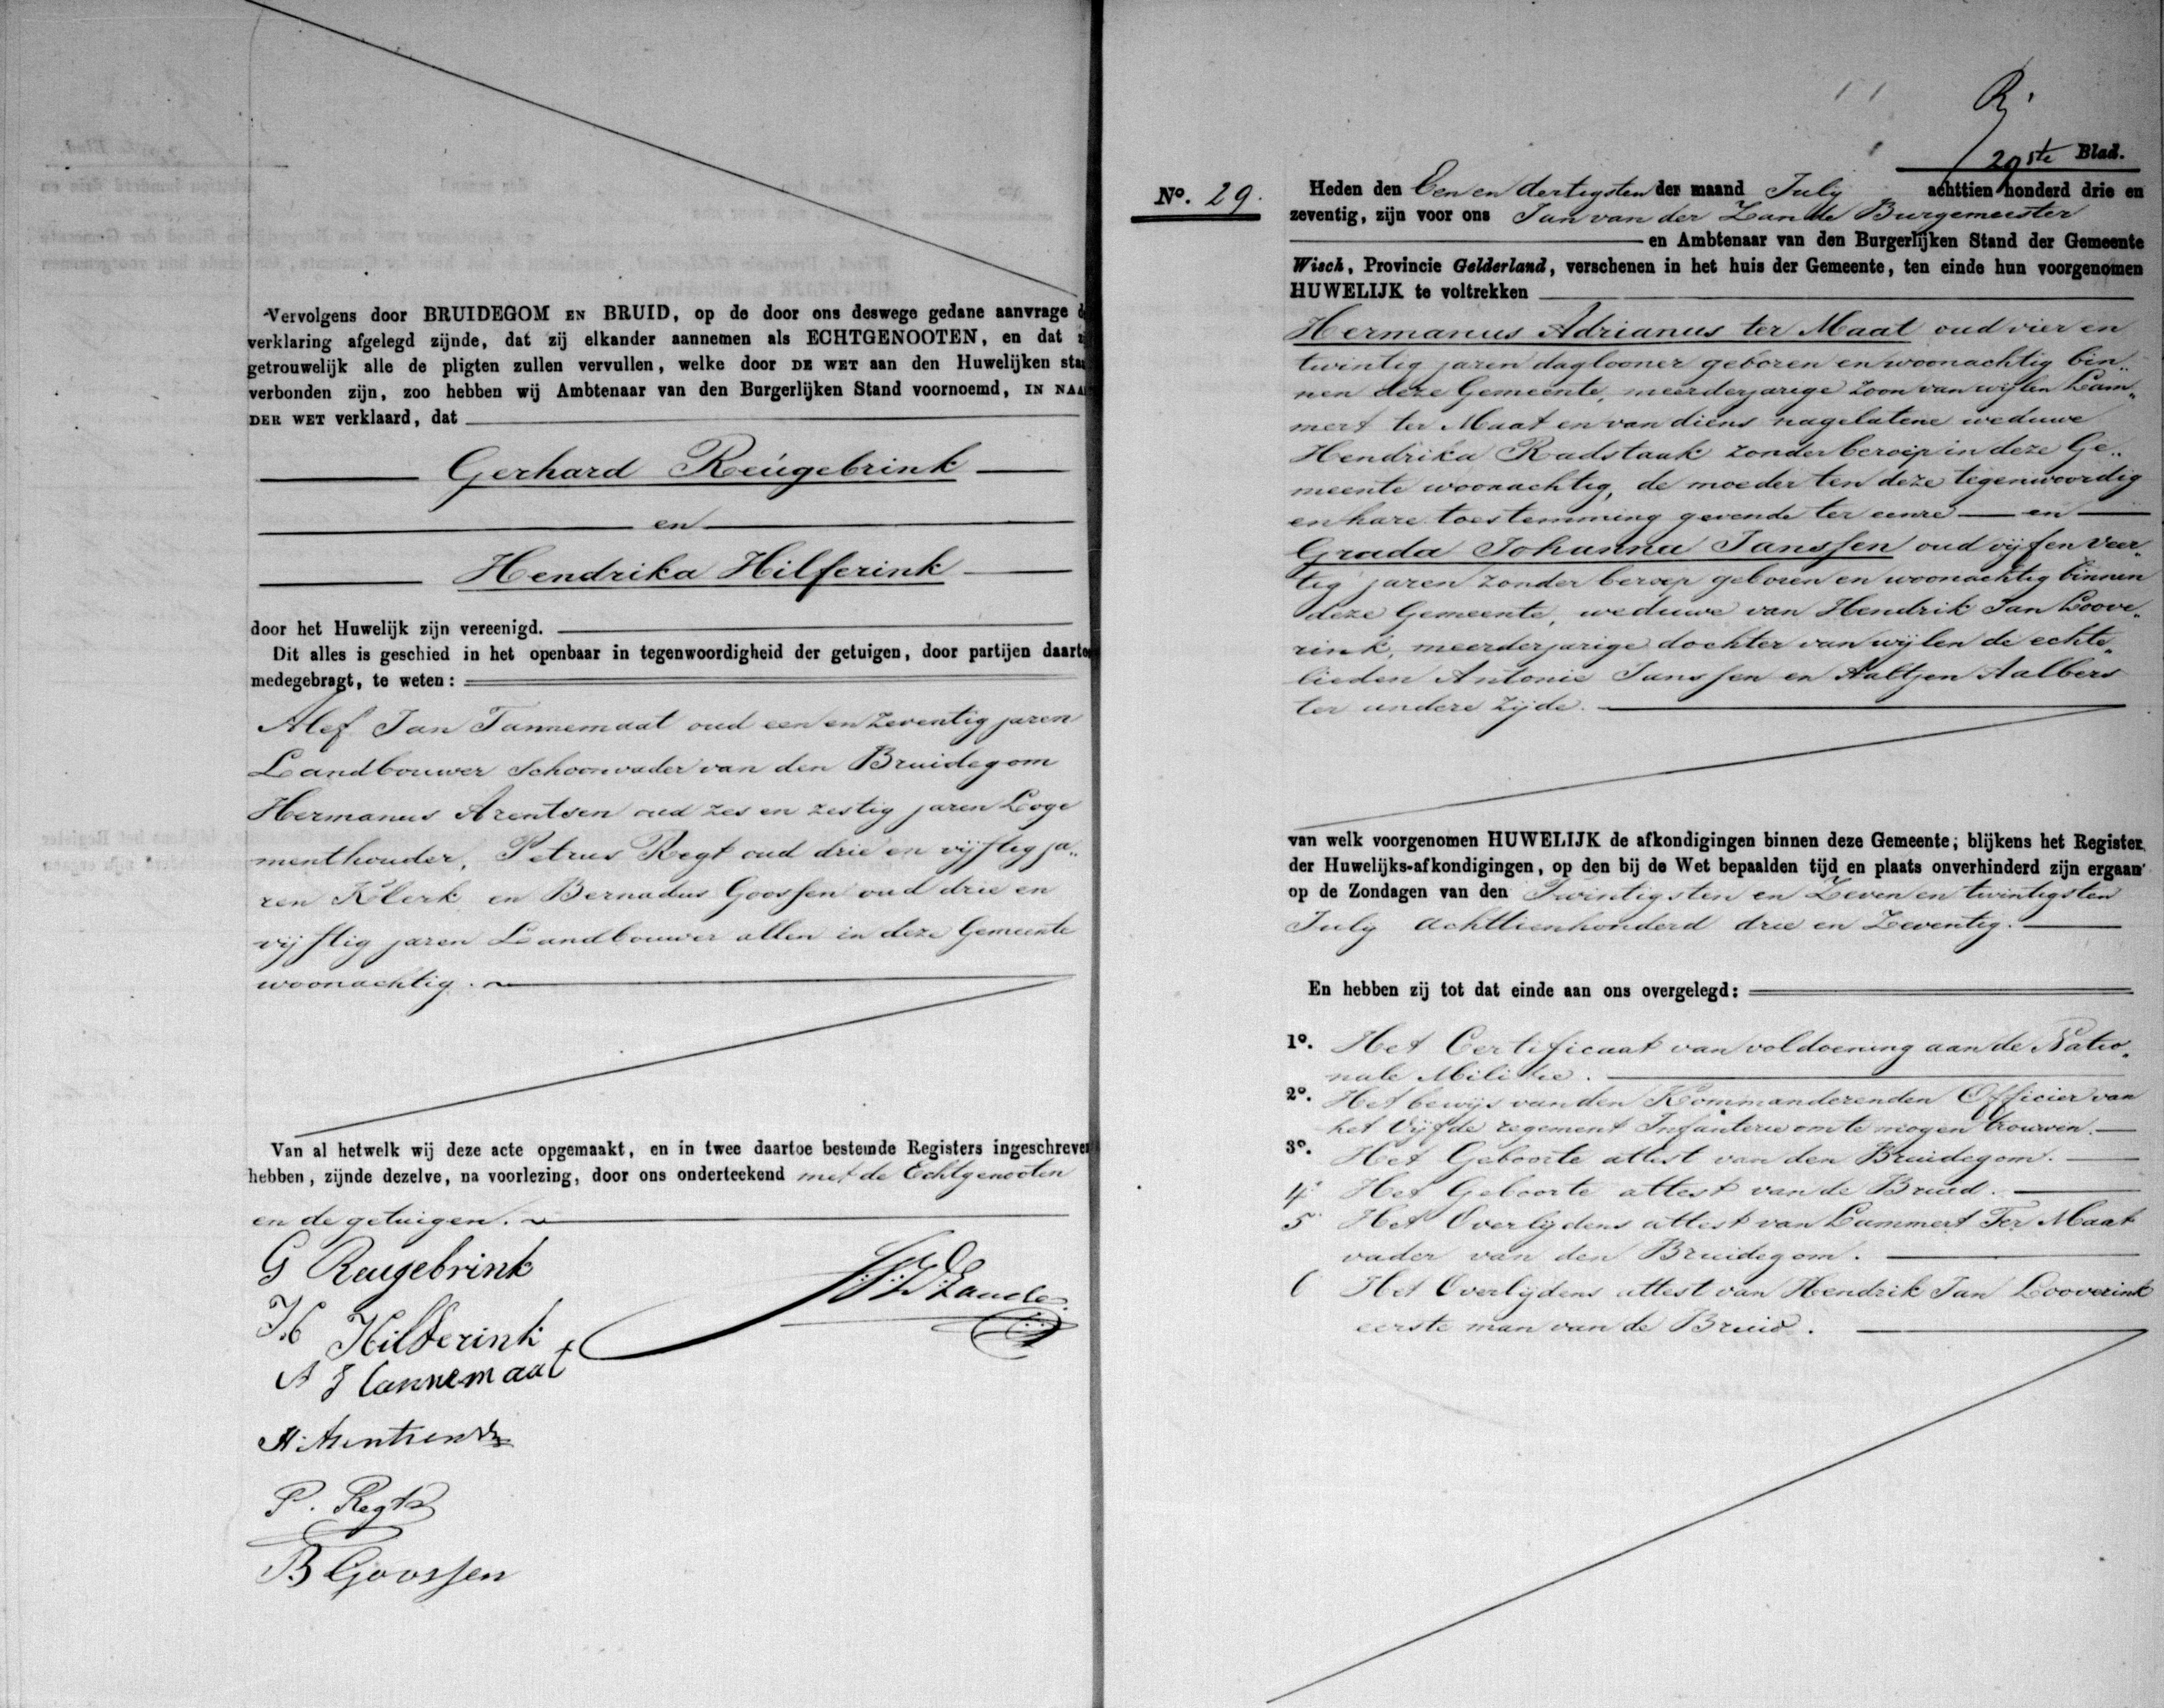 Vervolgens door BRUIDEGOM EN BRUID, op de door ons deswege gedane aanvrage
verklaring afgelegd zijnde, dat zij elkander aannemen als ECHTGENOOTEN, en dat
getrouwelijk alle de pligten zullen vervullen, welke door DE WET aan den Huwelijken
verbonden zijn, zoo hebben wij Ambtenaar van den Burgerlijken Stand voornoemd, IN
DER WET verklaard, dat
Gerhard Reúgebrink
en
Hendrika Hilferink
door het Huwelijk zijn vereenigd.
Dit alles is geschied in het openbaar in tegenwoordigheid der getuigen, door partijen
medegebragt, te weten:
Alef Jan Tannemaat oud een en zeventig jaren
Landbouwer Schoonvader van den Bruidegom
Hermanus Arentsen oud zes en zestig jaren Loge
menthouder, Petrus Regt oud drie en vijftig ja„
ren Klerk en Bernadus Goossen oud drie en
vijftig jaren Landbouwer allen in deze Gemeente
woonachtig.
Van al hetwelk wij deze acte opgemaakt, en in twee daartoe bestemde Registers
hebben, zijnde dezelve, na voorlezing, door ons onderteekend met de Echtgenooten
en de getuigen.
G Reugebrink
H Hilferink
A J Tannemaat
H. Arentsen
P. Regt
B Goossen
29ste Blad.
No. 29.
Heden den Een en dertigsten der maand July achttien honderd drie en
zeventig, zijn voor ons Jan van der Zande Burgemeester
en Ambtenaar van den Burgerlijken Stand der Gemeente
Wisch, Provincie Gelderland, verschenen in het huis der Gemeente, ten einde hun voorgenomen
HUWELIJK te voltrekken
Hermanus Adrianus ter Maat oud vier en
twintig jaren daglooner geboren en woonachtig bin„
nen deze Gemeente, meerderjarige zoon van wijlen Lam„
mert ter Maat en van diens nagelatene weduwe
Hendrika Radstaak zonder beroep in deze Ge„
meente woonachtig, de moeder ten deze tegenwoordig
en hare toestemming gevende ter eenre en
Grada Johanna Janssen oud vijf en veer„
tig jaren zonder beroep geboren en woonachtig binnen
deze Gemeente, weduwe van Hendrik Jan Loove„
rink, meerderjarige dochter van wijlen de echte„
lieden Antonie Janssen en Aaltjen Aalbers
ter andere zijde.
van welk voorgenomen HUWELIJK de afkondigingen binnen deze Gemeente; blijkens het Register
der Huwelijks-afkondigingen, op den bij de Wet bepaalden tijd en plaats onverhinderd zijn ergaan
op de Zondagen van den Twintigsten en Zeven en twintigsten
July achttienhonderd drie en Zeventig.
En hebben zij tot dat einde aan ons overgelegd:
1o. Het Certificaat van voldoening aan de Natio„
nale Militie.
2o. Het bewijs van den Kommanderenden Officier van
het Vijfde regement Infanterie om te mogen trouwen.
3o. Het Geboorte attest van den Bruidegom.
4 Het Geboorte attest van de Bruid.
5 Het Overlijdens attest van Lammert Ter Maat
vader van den Bruidegom.
6 Het Overlijdens attest van Hendrik Jan Looverink
eerste man van de Bruid.